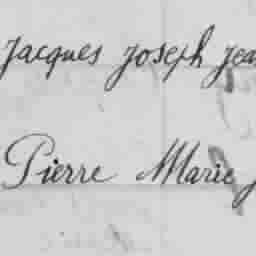 Jacques Joseph Jea
Pierre Marie J